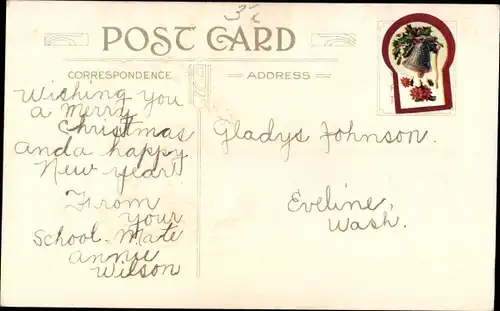 3¢
POST CARD
CORRESPONDENCE
ADDRESS
Wishing you
a Merry
Christmas
and a happy
New year!
From
your
School-Mate
Annie
Wilson
Gladys Johnson.
Eveline,
Wash.